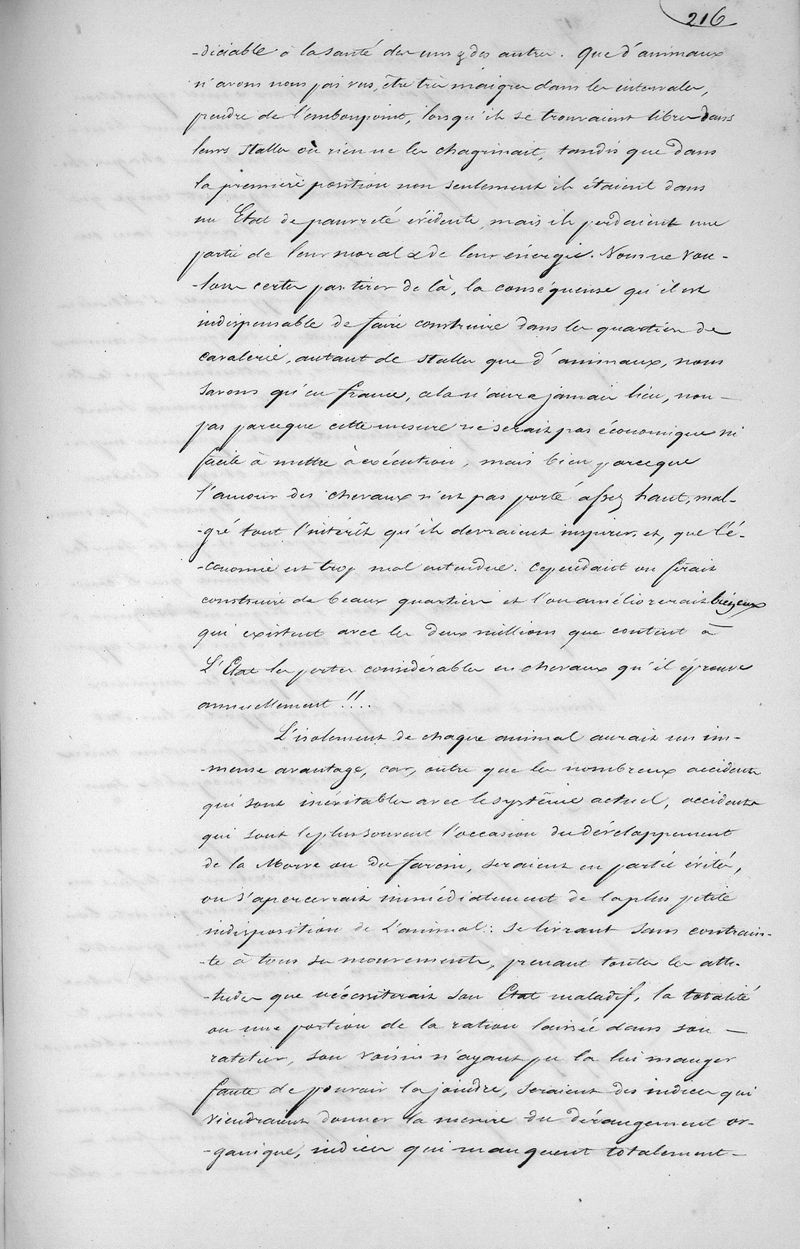 216
-diciable à la santé des uns & des autres. Que d'animaux
n'avons nous pas vus, être très maigres dans les intervales,
prendre de l'embonpoint, lorsqu'ils se trouvaient libres dans
leurs stalles où rien ne les chagrinait, tandis que dans
la première position non seulement ils étaient dans
un Etat de pauvreté évidente, mais ils perdaient une
partie de leur moral & de leur énergie. Nous ne vou-
-lons certes pas tirer de là, la conséquense qu'il est
indispensable de faire construire dans les quartiers de
cavalerie, autant de stalles que d'animaux, nous
savons qu'en france, cela n'aura jamais lieu, non —
pas parceque cette mesure ne serait pas économique ni
facile à mettre à exécution, mais bien parceque
l'amour des chevaux n'est pas porté assez haut, mal-
-gré tout l'intérêt qu'ils devraient inspirer, et, que l'é-
-conomie est trop mal entendue. Cependant on ferait
construire de beaux quartiers et l'on améliorerait bien ceux
qui existent avec les deux millions que coutent à
L'Etat les pertes considérables en chevaux qu'il éprouve
annuellement !!..
L'isolement de chaque animal aurait un im-
-mense avantage, car, outre que les nombreux accidents
qui sont inévitables avec le système actuel, accidents
qui sont le plus souvent l'occasion du dévelappement
de la Morve ou du farcin, seraient en partie évités,
on s'apercevrait immédiatement de la plus petite
indisposition de L'animal : se livrant sans contrain-
-te à tous ses mouvements, prenant toutes les atti-
-tudes que nécessiterait son Etat maladif, la totalité
ou une portion de la ration laissée dans son —
ratelier, son voisin n'ayant pu la lui manger
faute de pouvoir la joindre, seraient des indices qui
viendraient donner la mesure du dérangement or-
-ganique, indices qui manquent totalement —